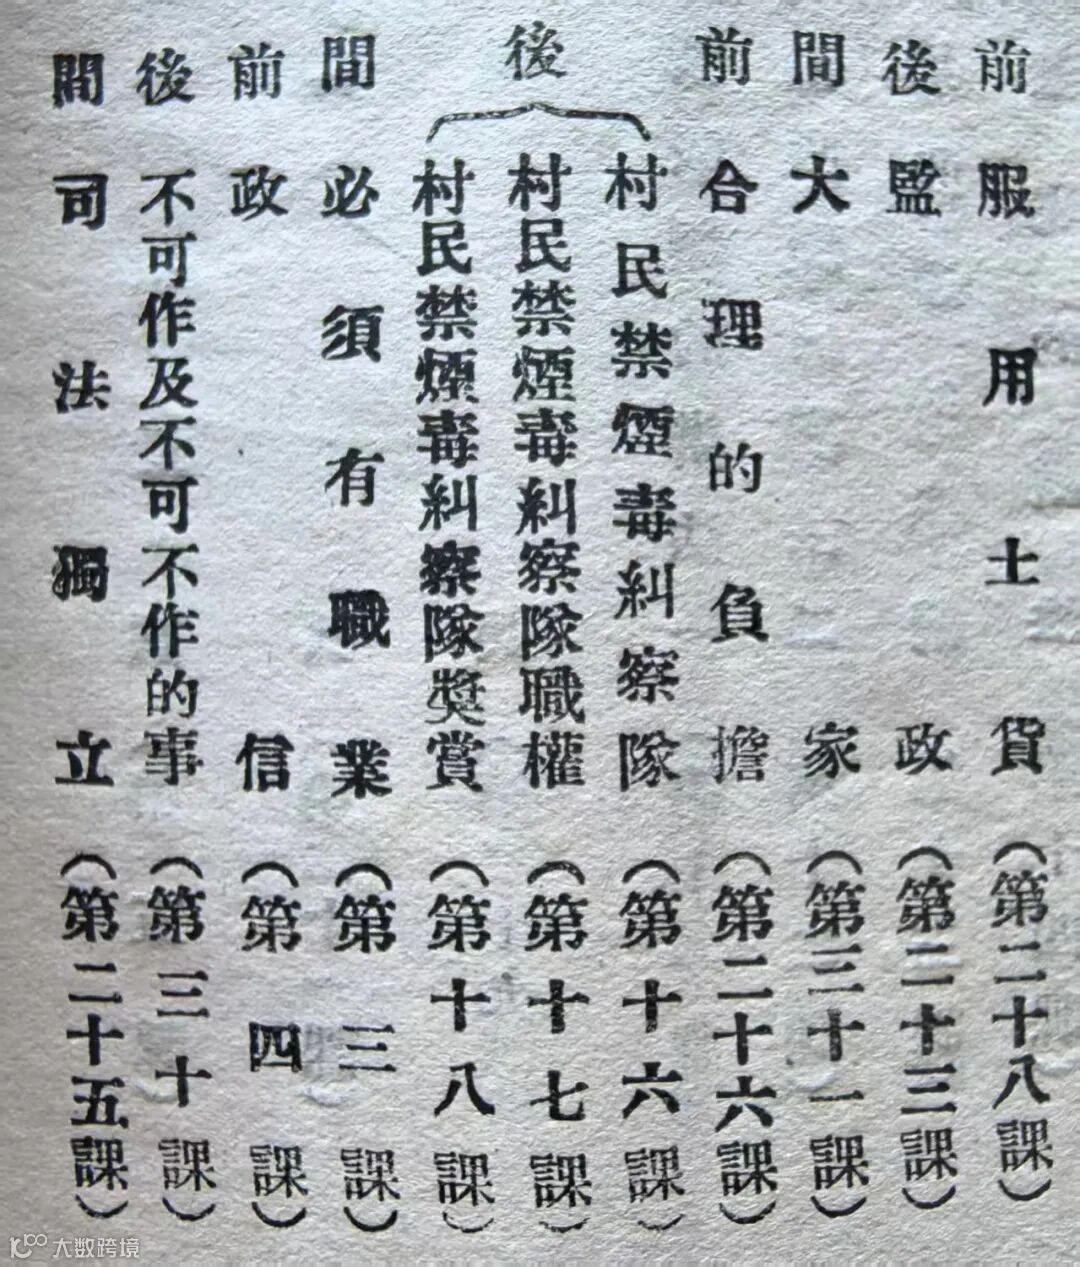 前 服用土貨 (第二十八課)
後 監政 (第二十三課)
間 大家 (第三十一課)
前 合理的負擔 (第二十六課)
後 村民禁煙毒糾察隊 (第十六課)
村民禁煙毒糾察隊職權 (第十七課)
村民禁煙毒糾察隊獎賞 (第十八課)
間 必須有職業 (第三課)
前 政信 (第四課)
後 不可作及不可不作的事 (第三十課)
間 司法獨立 (第二十五課)
大数跨境